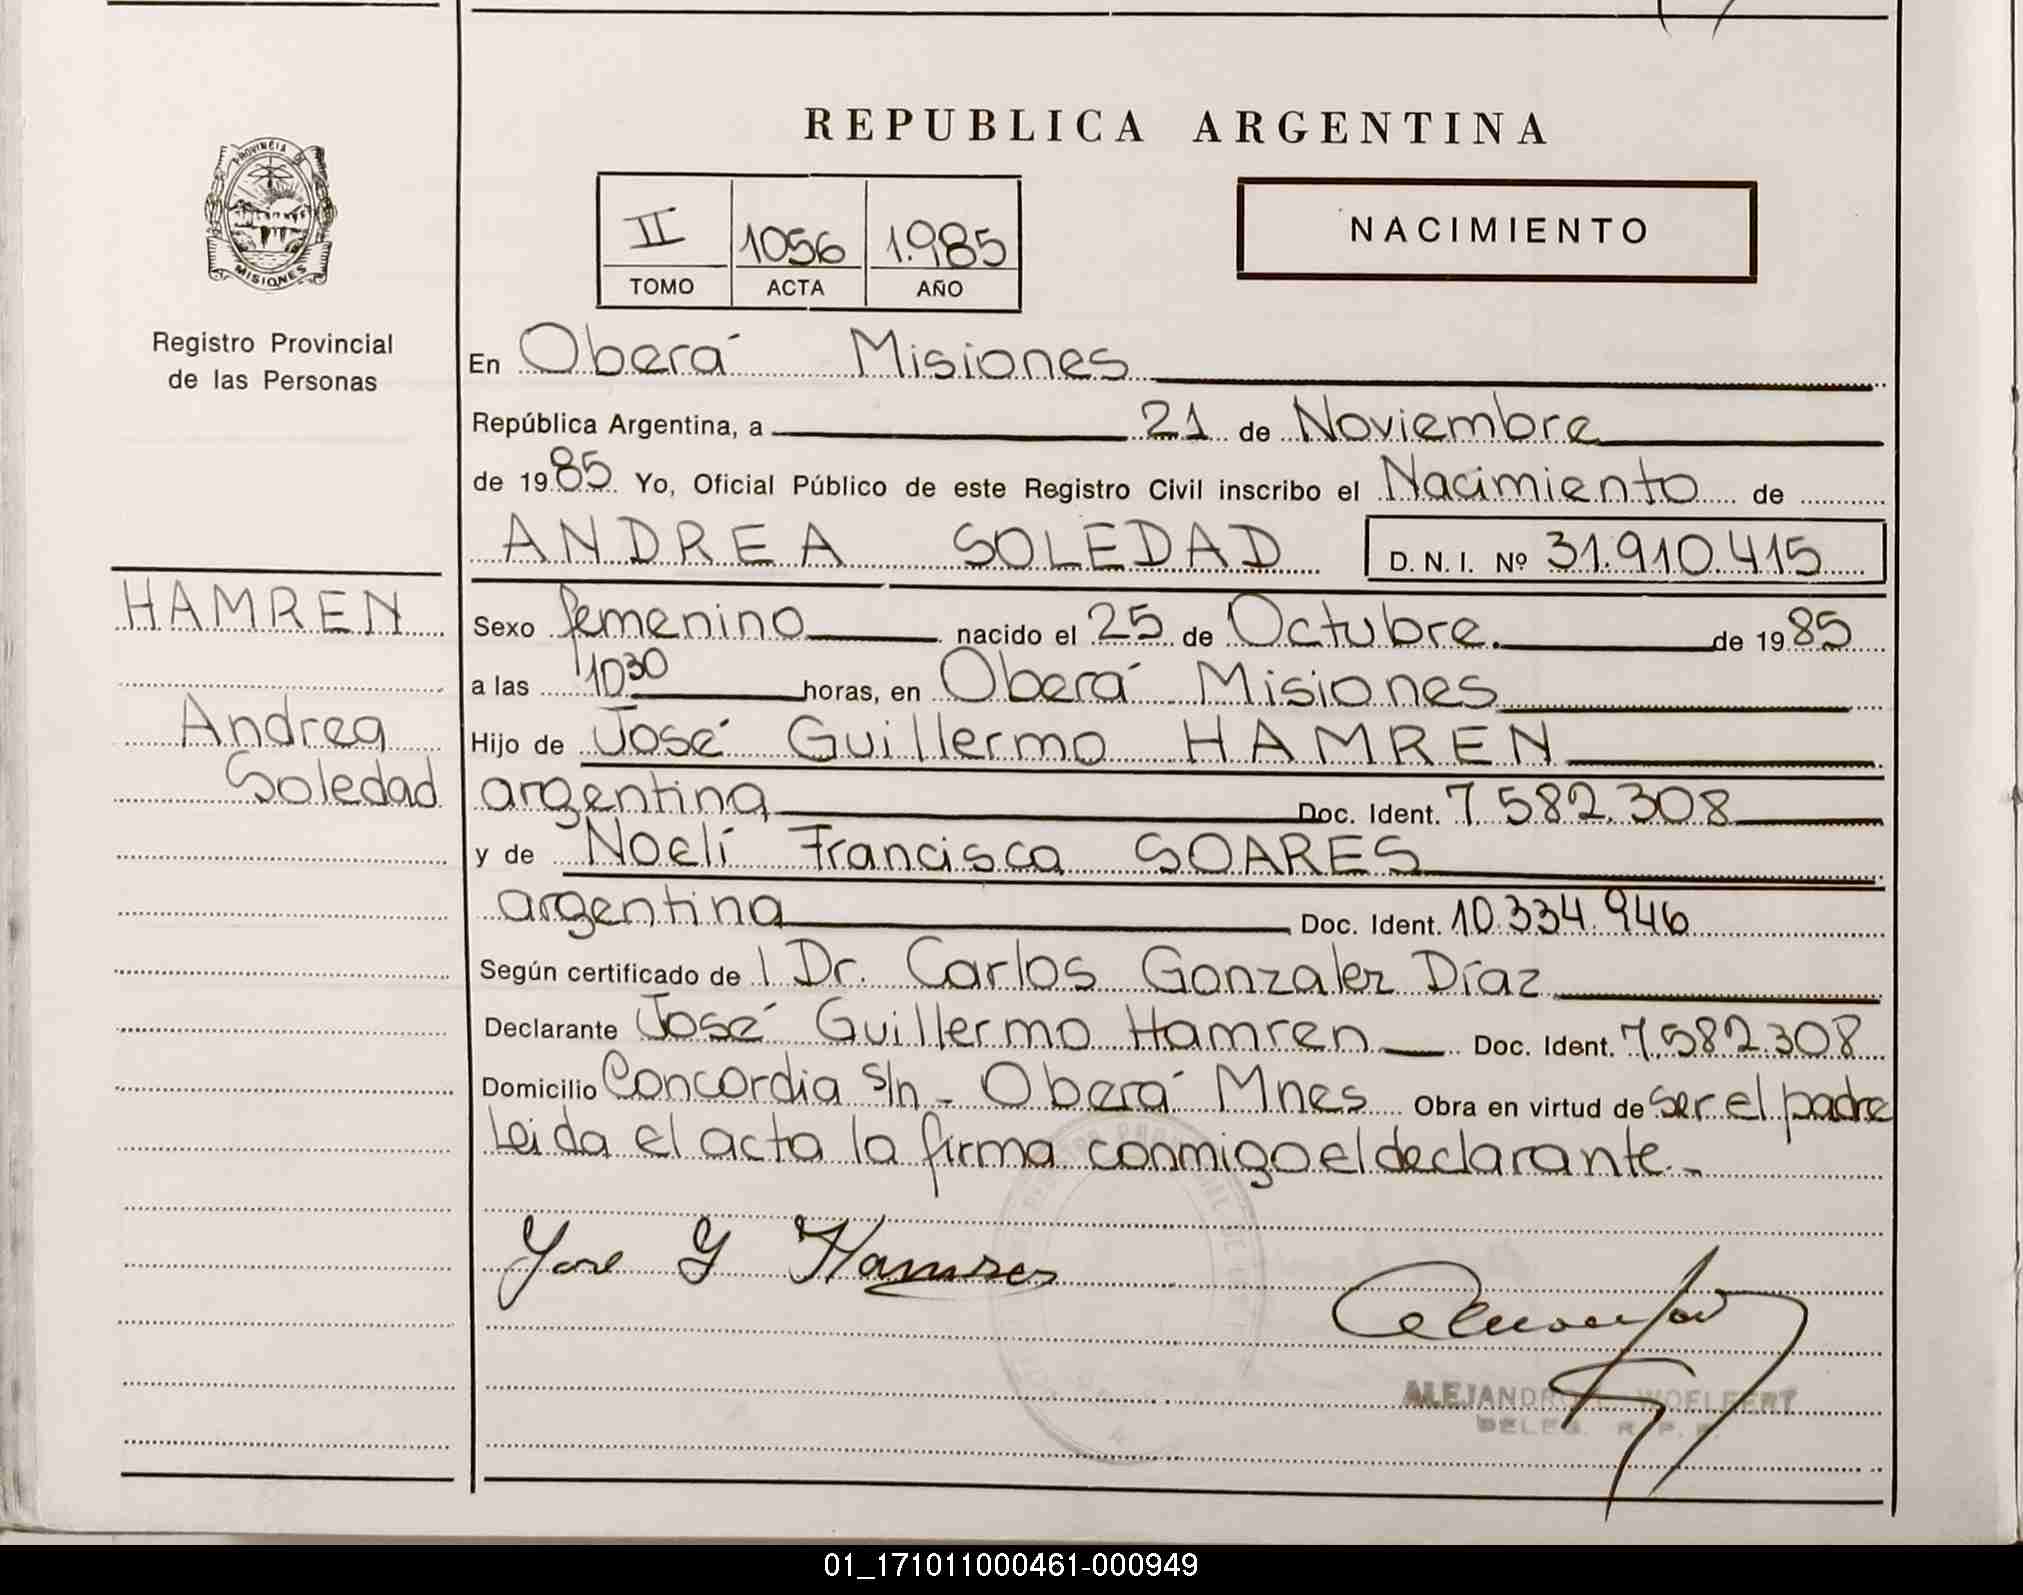 REPUBLICA ARGENTINA
PROVINCIA DE
MISIONES
Registro Provincial
de las Personas
II 1056 1.985
TOMO ACTA AÑO
NACIMIENTO
En Oberá Misiones
República Argentina, a 21 de Noviembre
de 1985 Yo, Oficial Público de este Registro Civil inscribo el Nacimiento de
ANDREA SOLEDAD D. N. I. Nº 31.910.415
HAMREN
Andrea
Soledad
Sexo femenino nacido el 25 de Octubre. de 1985
a las 10 30 horas, en Oberá Misiones
Hijo de José Guillermo HAMREN
argentina Doc. Ident. 7.582.308
y de Noelí Francisca SOARES
argentina Doc. Ident. 10.334.946
Según certificado de l Dr. Carlos Gonzalez Díaz
Declarante José Guillermo Hamren Doc. Ident. 7.582.308
Domicilio Concordia s/n - Oberá Mnes Obra en virtud de ser el padre
Leida el acta la firma conmigo el declarante.-
Jose G Hamren
ALEJANDRO WOELFERT
DELEG. R. P. P.
01_171011000461-000949